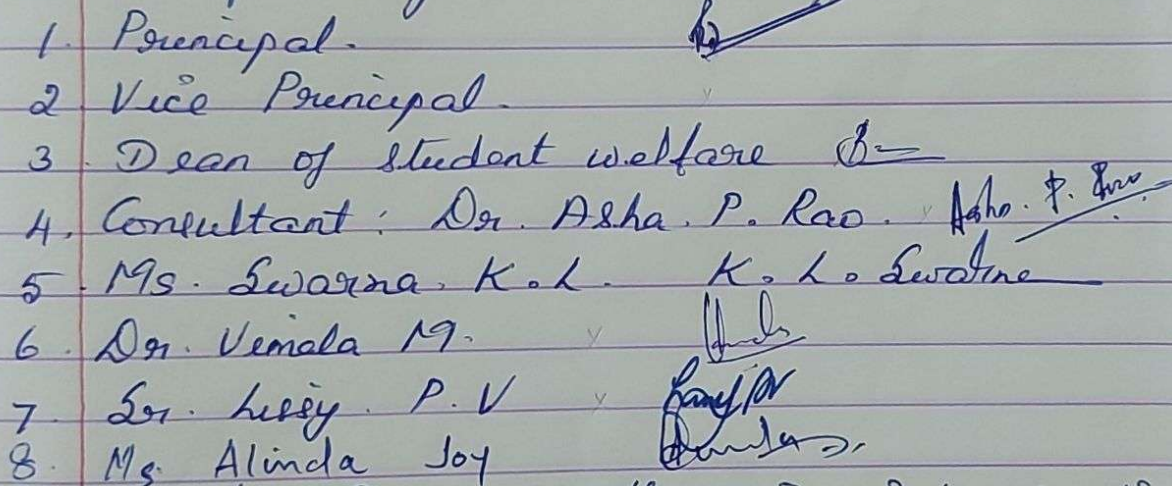 1. Principal.
2 Vice Principal.
3. Dean of student welfare
4. Consultant: Dr. Asha. P. Rao. Asha. P. Rao
5. Ms. Swarna. K.L. K.L. Swarna
6. Dr. Vimala M.
7. Sr. Lissy. P.V
8. Ms. Alinda Joy